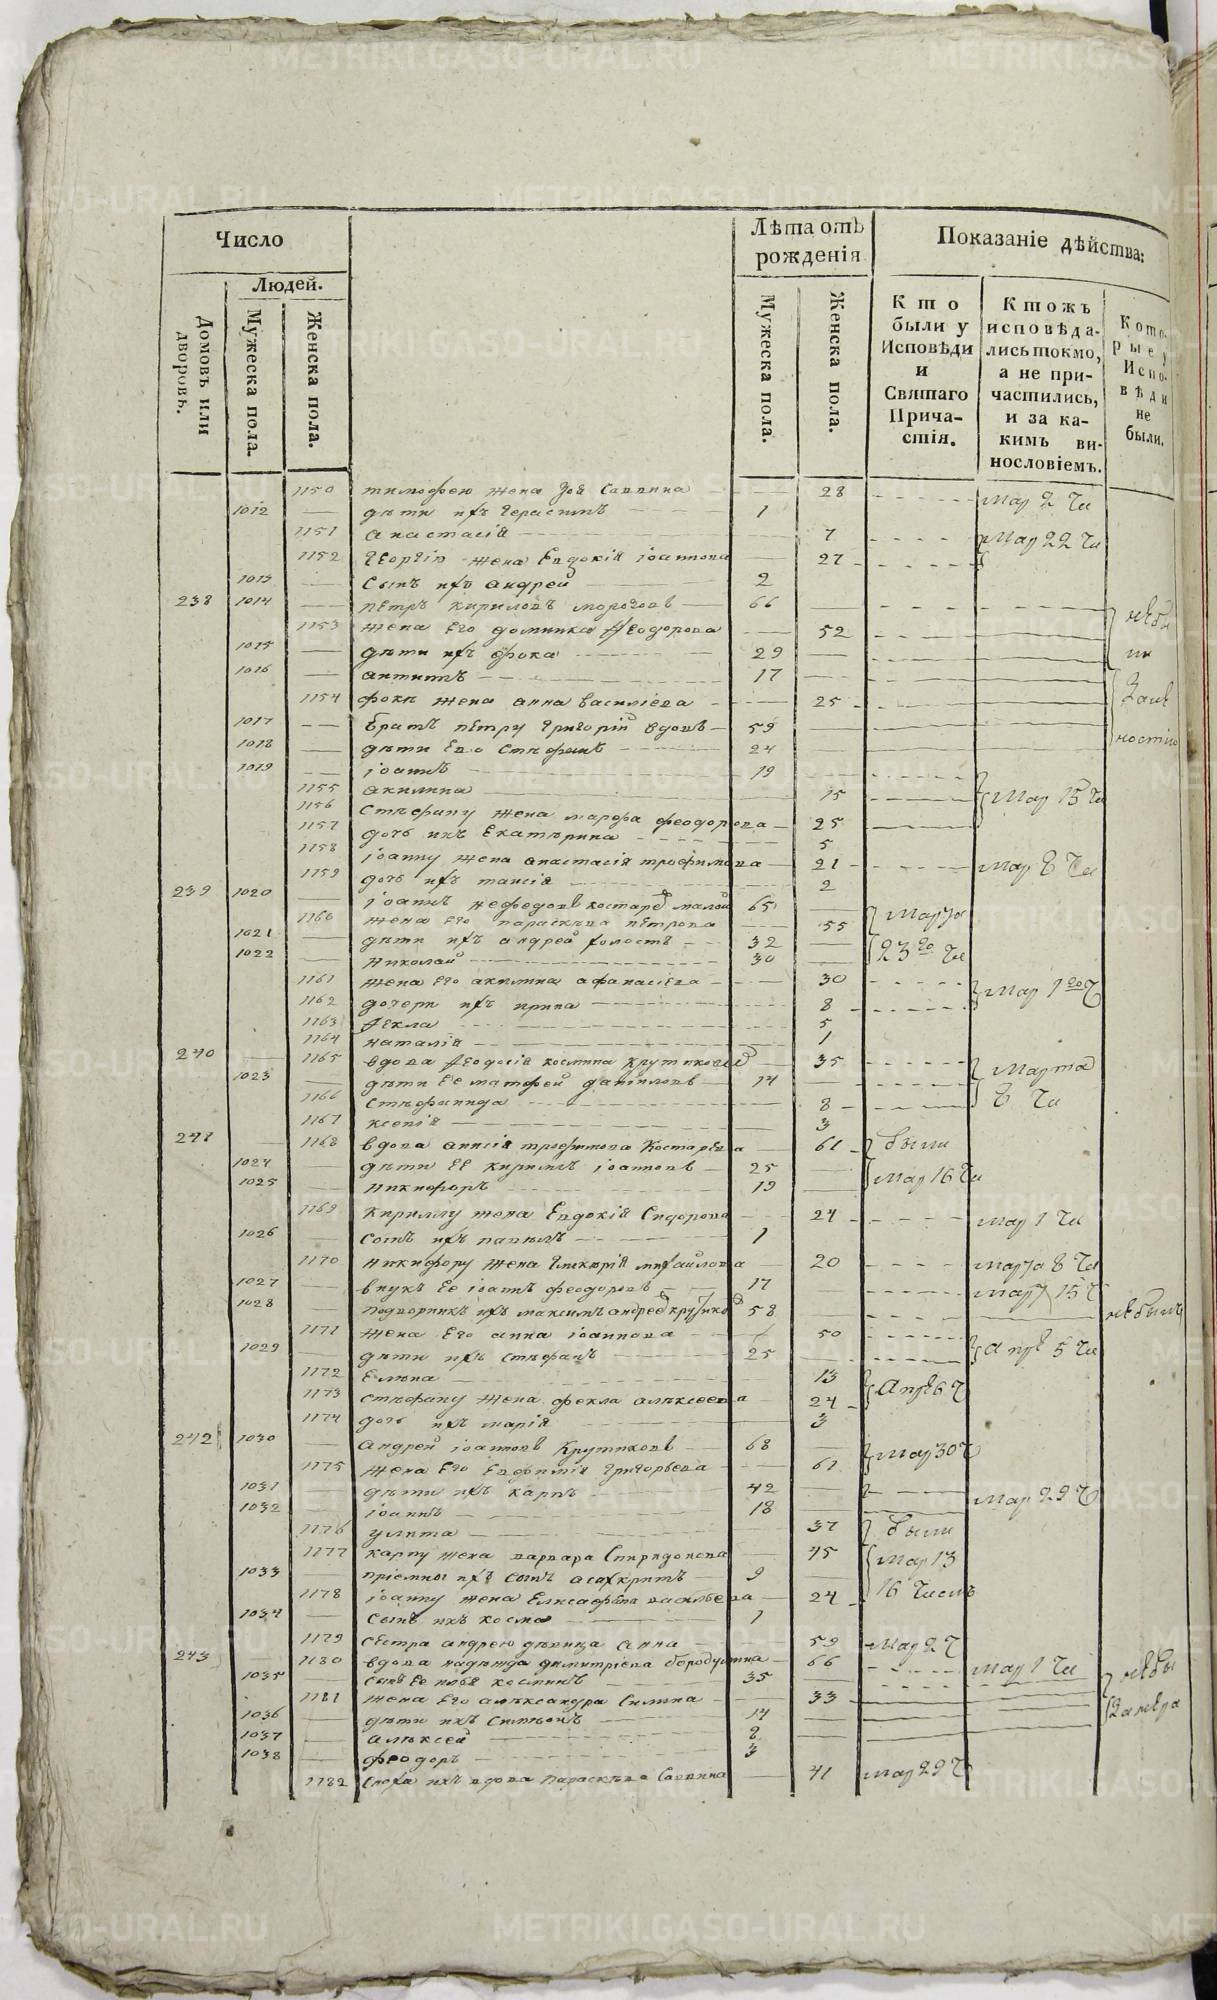 Число
Людей.
Домовъ или дворовъ.
Мужеска пола.
Женска пола.
Лѣта отъ рожденія
Мужеска пола.
Женска пола.
Показаніе дѣйства:
Кто были у Исповѣди и Святаго Причастія.
Ктожъ исповѣдались токмо, а не причастились, и за какимъ винословіемъ.
Которые у Исповѣди не были.
1150 тимофею жена Зоя Саввина 28 мар 2 чи
1012 дѣти ихъ Герасимъ 1
1151 Анастасія 7 Мар 22 чи
1152 Георгію жена Евдокія іоаннова 27
1013 Сынъ ихъ Андрей 2
238 1014 Петръ Кириловъ морозовъ 66 не бы
1153 жена его домника Ѳеодорова 52
1015 дѣти ихъ фока 29 ли
1016 антипъ 17
1154 фоки жена анна василіева 25
1017 братъ петру григорій вдовъ 59
1018 дѣти его Стефанъ 24
1019 іоаннъ 19
1155 акилина 15 Мар 15 чи
1156 Стефану жена марфа феодорова 25
1157 дочь ихъ Екатерина 5
1158 іоанну жена анастасія трофимова 21 мар 8 чи
1159 дочь ихъ таисія 2
239 1020 іоаннъ нефедовъ костаре малой 65
1160 жена его параскева петрова 55 марта
1021 дѣти ихъ андрей холостъ 32 23го чи
1022 Николай 30
1161 жена его акилина афанасіева 30 мар 1го Ч
1162 дочери ихъ ирина 8
1163 Ѳекла 5
1164 наталія 1
240 1165 вдова Ѳеодосія космина крутикова 35 марта
1023 дѣти ее матфей даниловъ 14 8 чи
1166 Стефанида 8
1167 ксенія 3
241 1168 вдова анисія трофимова Костарева 61 были
1024 дѣти ее кирилъ іоанновъ 25 мар 16 чи
1025 никифоръ 19
1169 Кирилу жена Евдокія Сидорова 24 мар 1 чи
1026 сынъ ихъ павелъ 1
1170 никифору жена гликерія михайлова 20 марта 8 чи
1027 внукъ ее іоаннъ феодоровъ 17 март 15 Ч
1028 подворникъ ихъ максимъ андреев 58 не былъ
1171 жена его анна іоаннова 50
1029 дѣти ихъ Стефанъ 25 апр 5 чи
1172 Елена 13
1173 Стефану жена фекла алексеева 24 Апр 6 Ч
1174 дочь ихъ марія 3
242 1030 андрей іоанновъ Крутиковъ 68 мар 30 Ч
1175 жена его Евфимія григорьева 61
1031 дѣти ихъ карпъ 42 мар 29 Ч
1032 іоаннъ 18
1176 улита 37 были
1177 карпу жена варвара Спиридонова 45 мар 13
1033 пріемный ихъ сынъ асинкритъ 9
1178 іоанну жена Елисавета васильева 24 16 чиселъ
1034 сынъ ихъ косма 1
1179 сестра андрею девица анна 59 мар 2 Ч
243 1180 вдова надежда димитріева бородулина 66 мар 1 чи
1035 сынъ ее косминъ 35 не бы
1181 жена его александра Силина 33
1036 дѣти ихъ Симеонъ 14
1037 алексей 8
1038 феодоръ 3
1182 сноха ихъ вдова Параскева Саввина 41 мар 29 Ч
METRIKI.GASO-URAL.RU